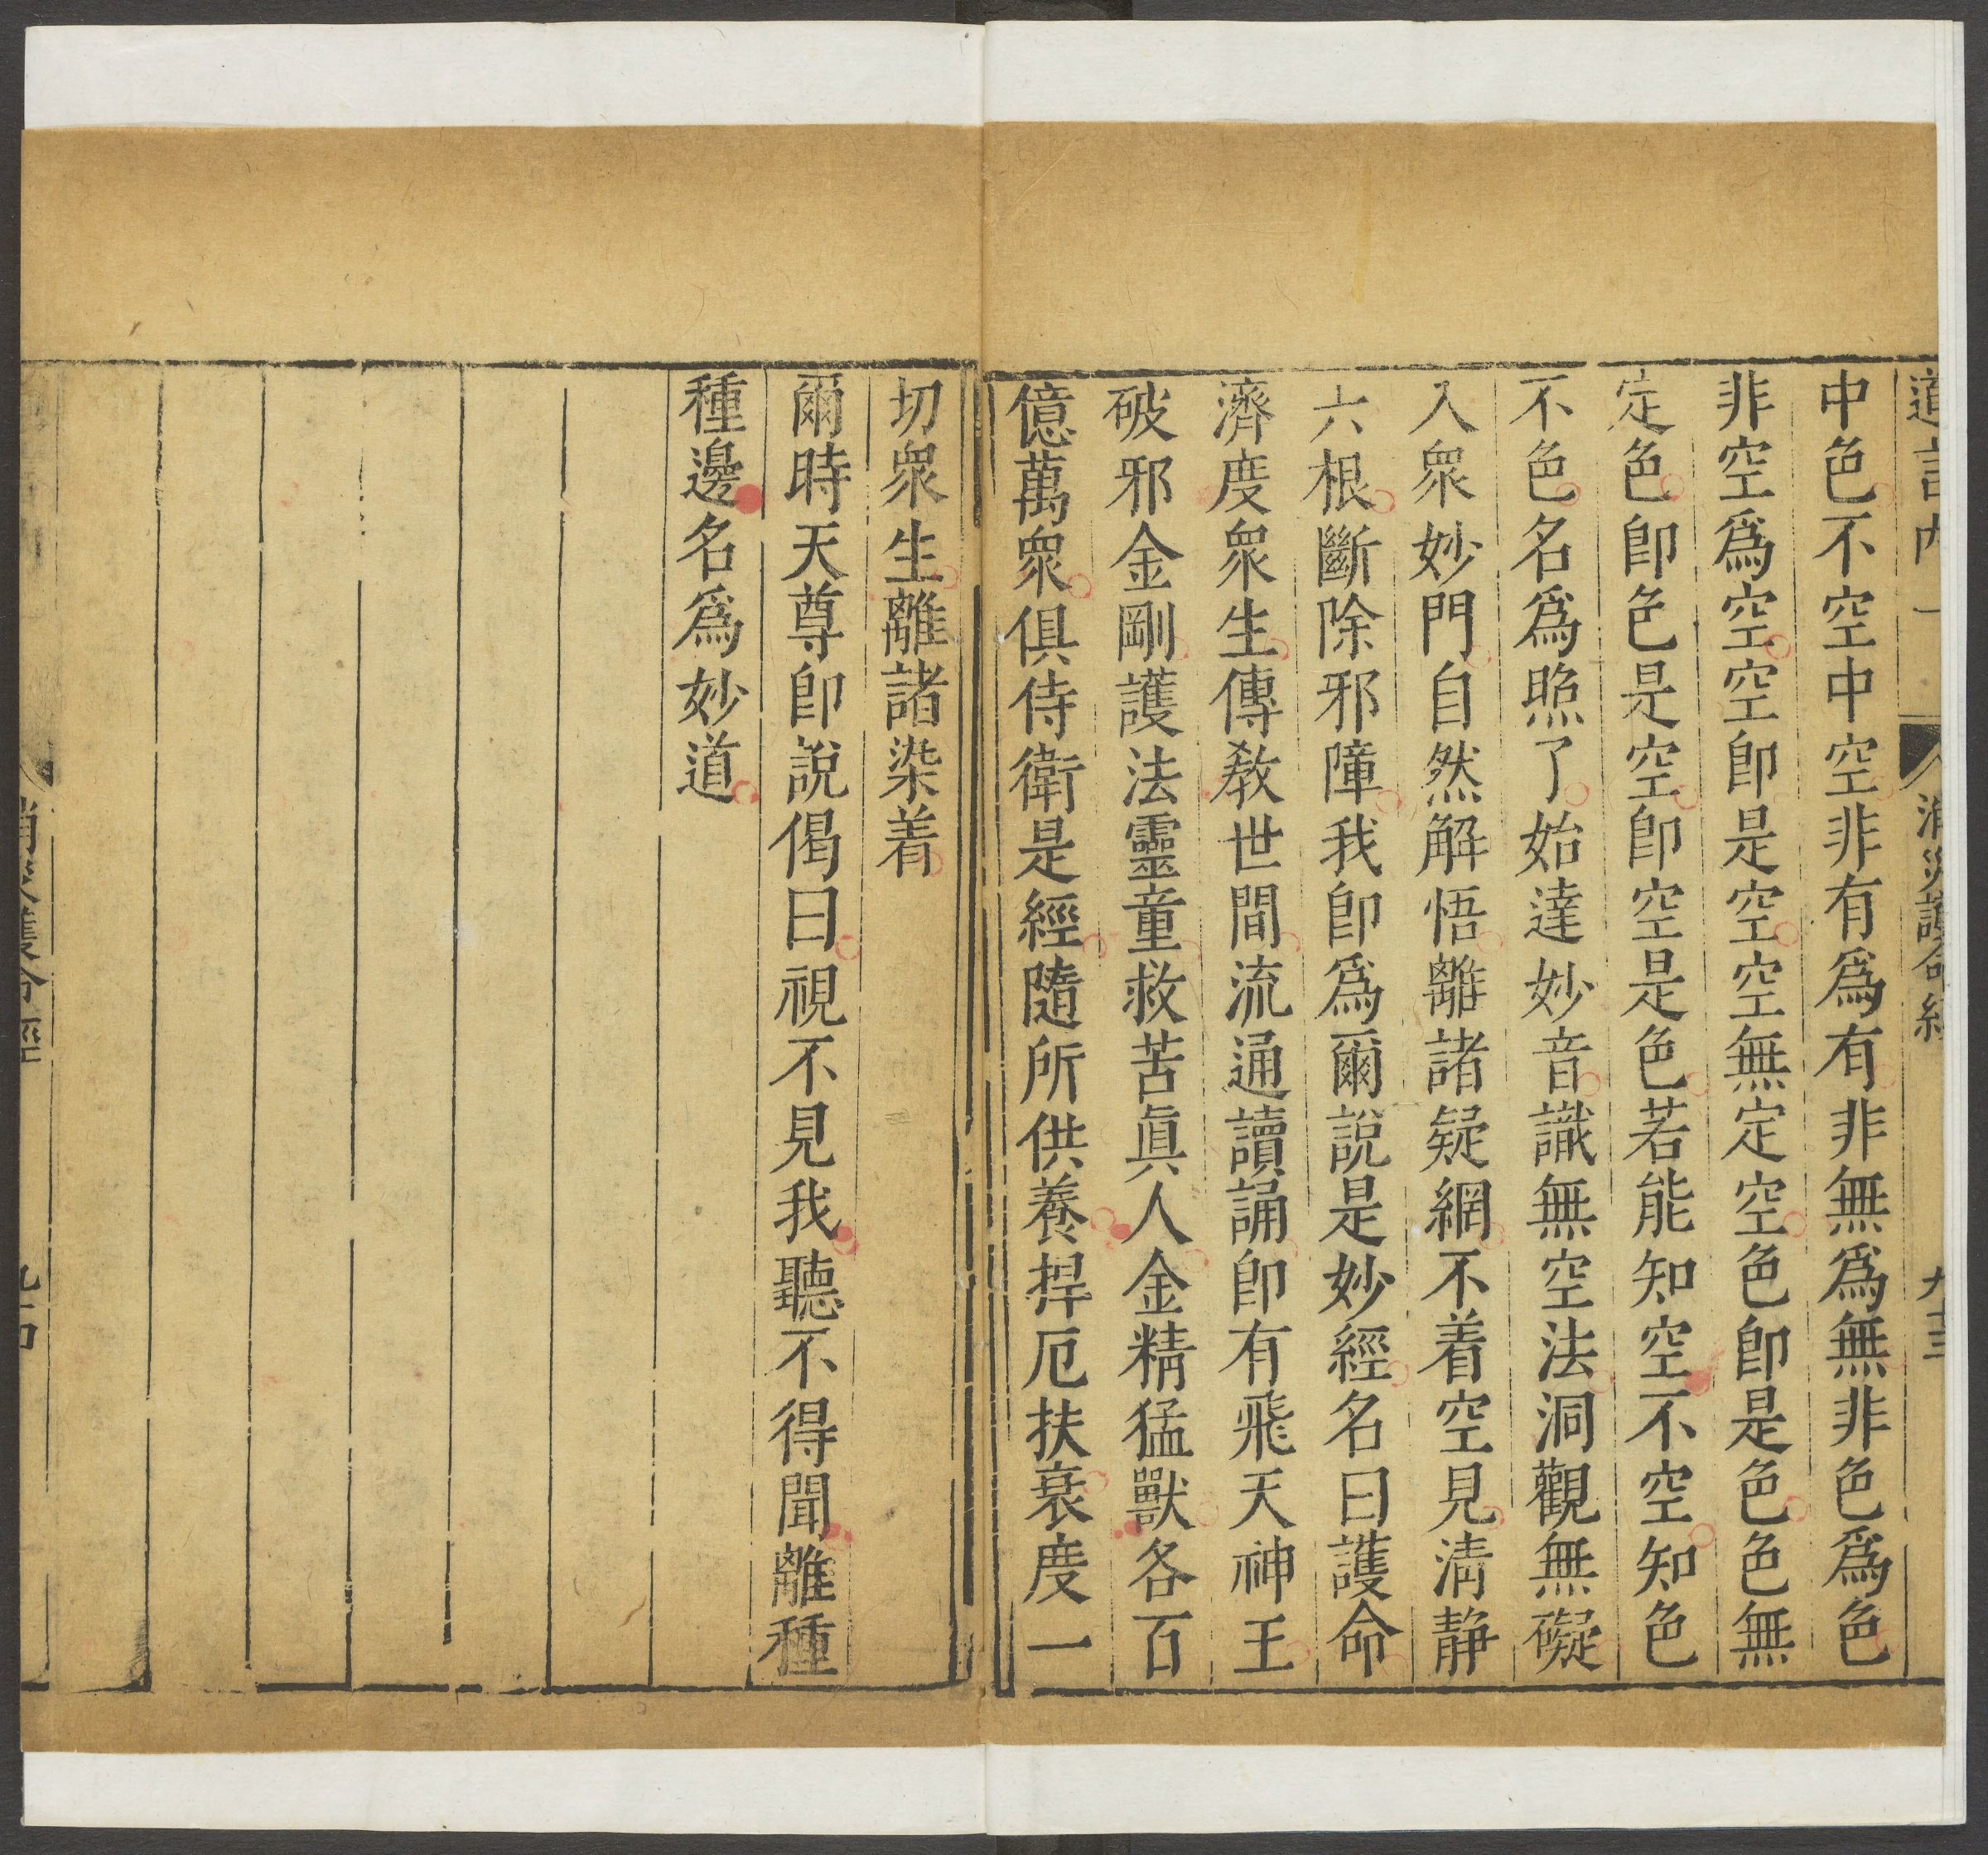 消災護命經
九十三
中色不空中空非有為有非無為無非色為色
非空為空空即是空空無定空色即是色色無
定色即色是空即空是色若能知空不空知色
不色名為照了始達妙音識無空法洞觀無礙
入眾妙門自然解悟離諸疑網不着空見清静
六根斷除邪障我即為爾說是妙經名曰護命
濟度眾生傳教世間流通讀誦即有飛天神王
破邪金剛護法靈童救苦真人金精猛獸各百
億萬眾俱侍衛是經隨所供養捍厄扶衰度一
切眾生離諸染着
爾時天尊即說偈曰視不見我聽不得聞離種
種邊名為妙道